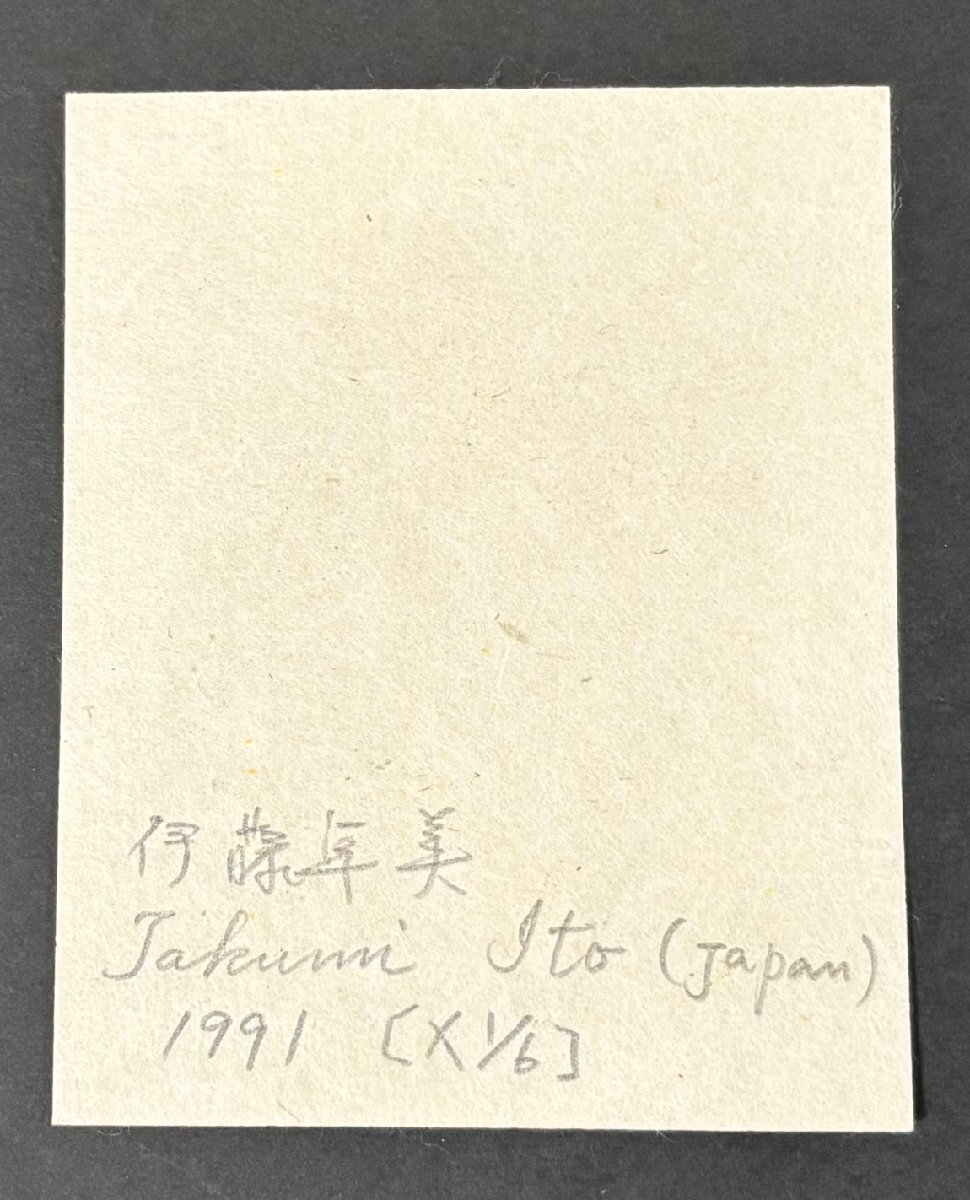 伊藤卓美
Takumi Ito (Japan)
1991 [X1/6]